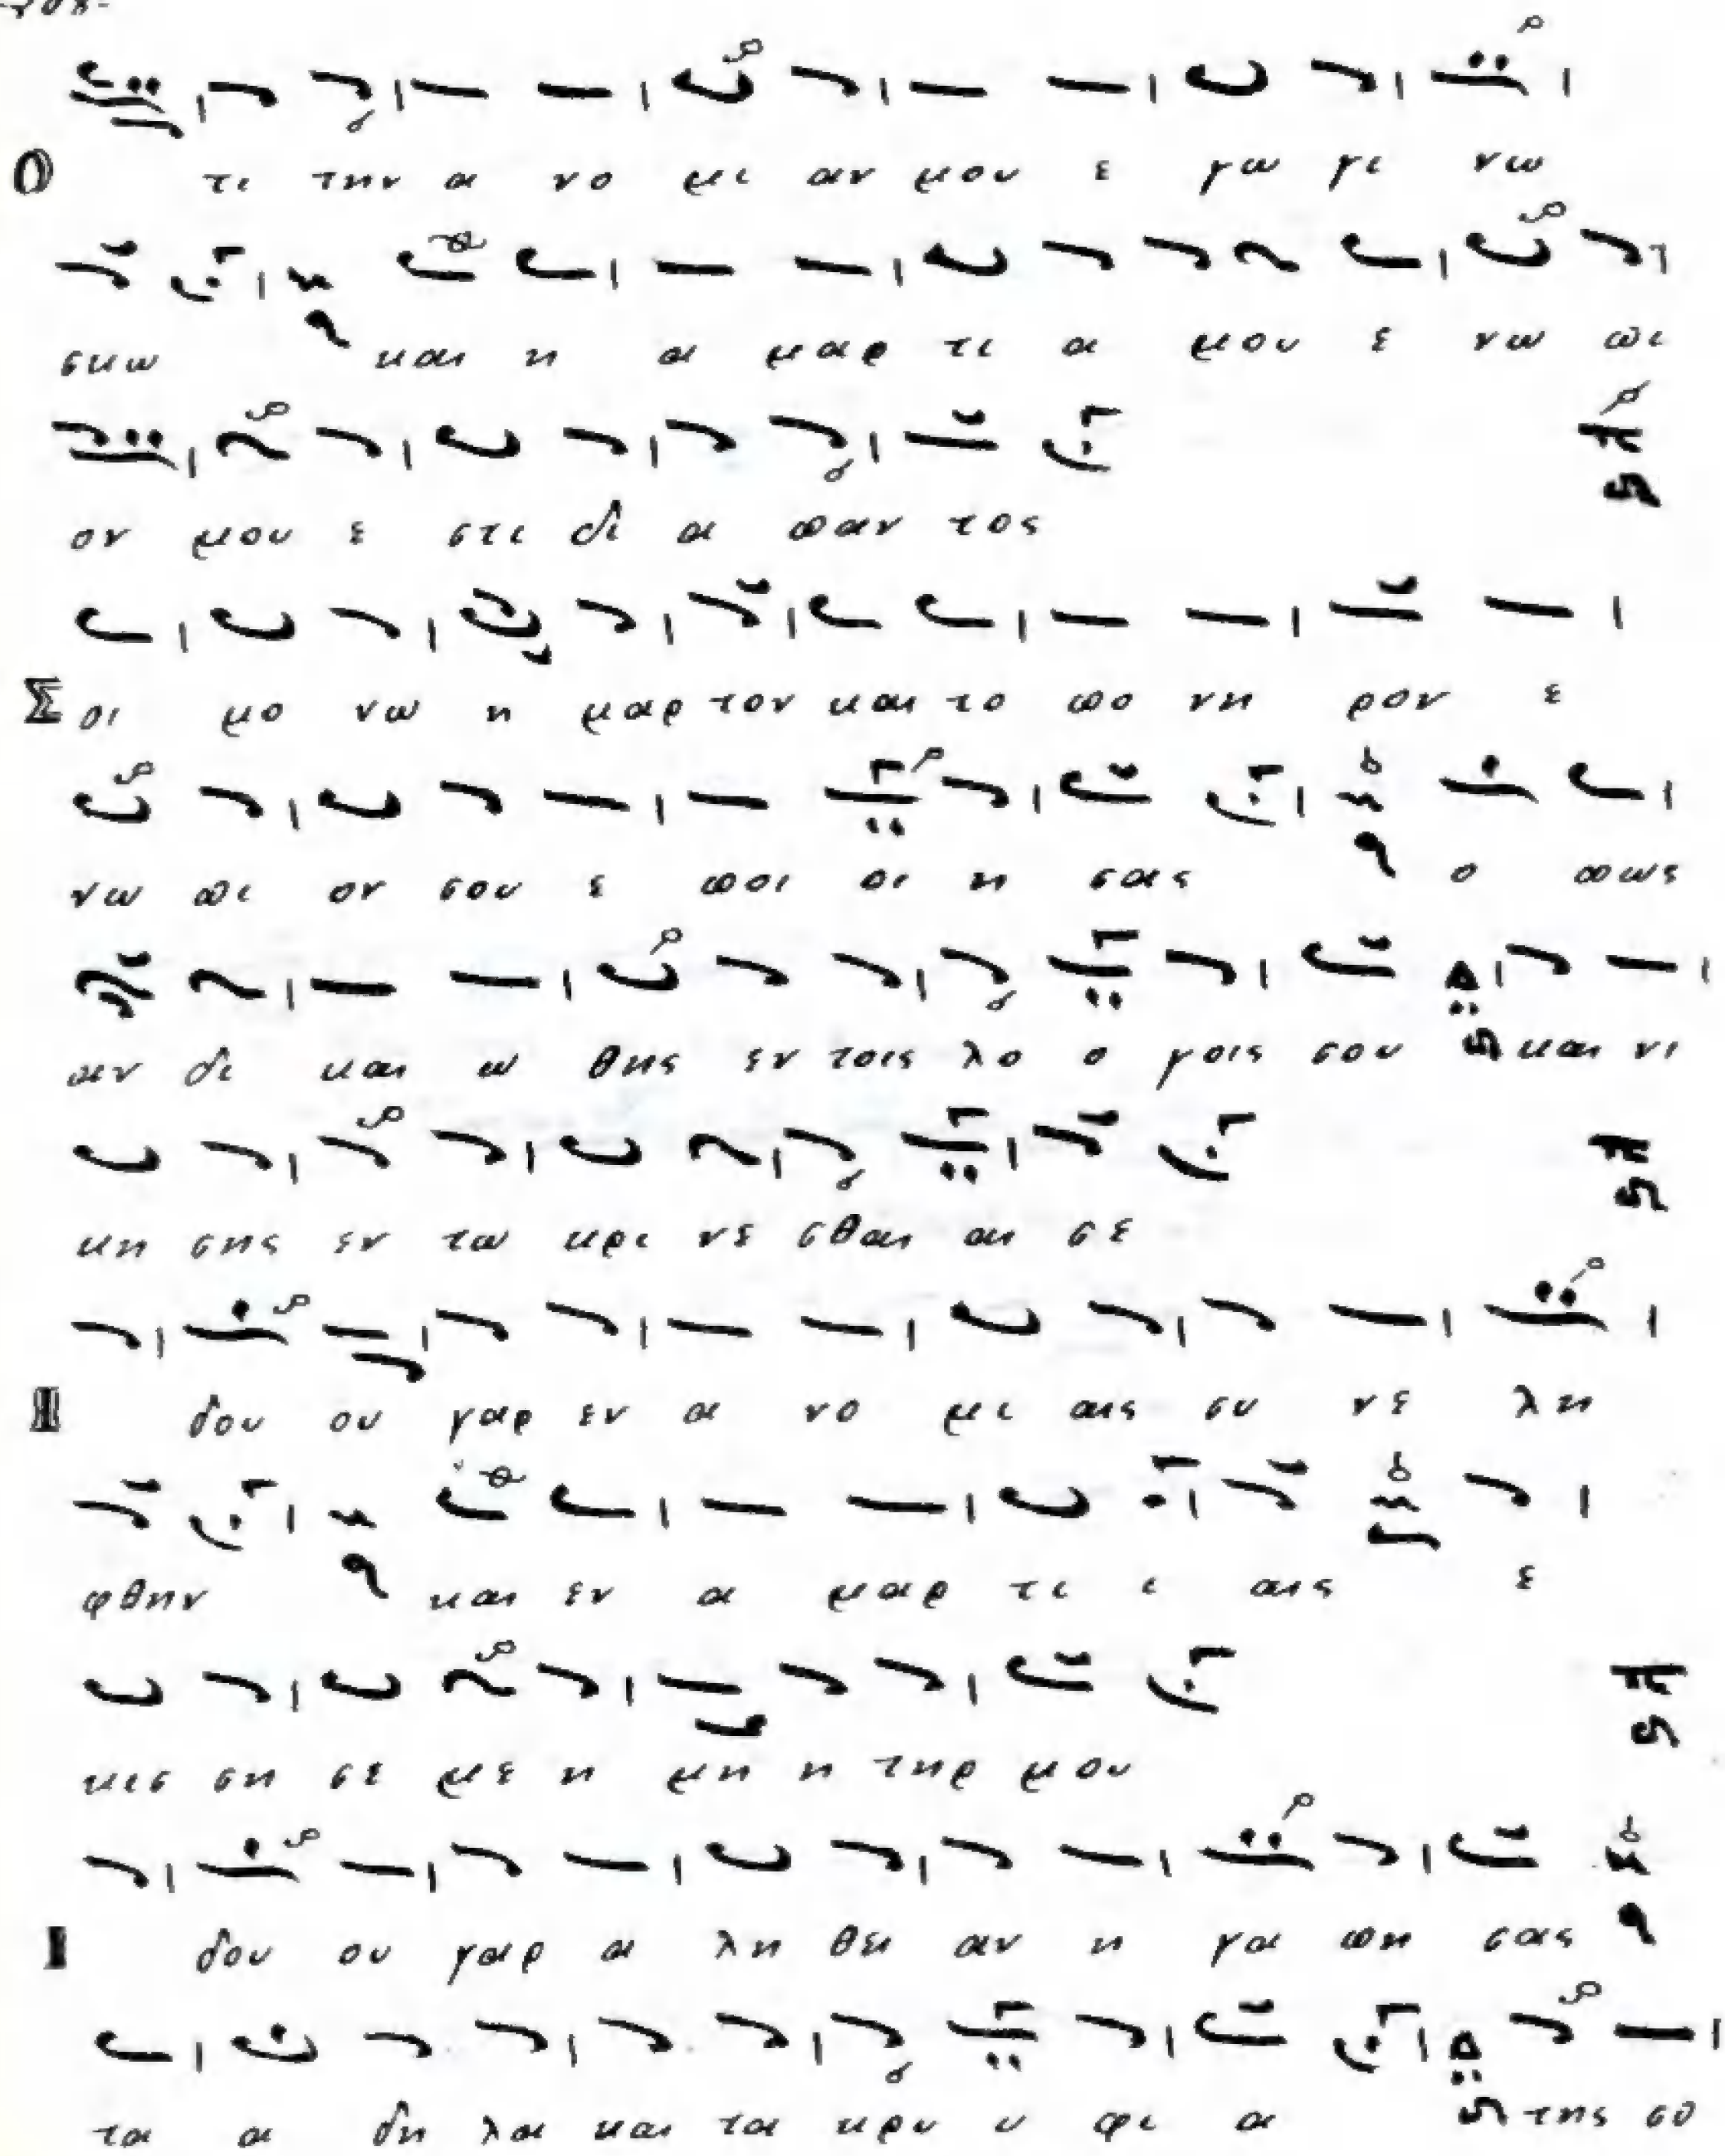 Ο τι την α νο μι αν μου ε γω γι νω
σκω και η α μαρ τι α μου ε νω πι
ον μου ε στι δι α παν τος
Σοι μο νω η μαρ τον και το πο νη ρον ε
νω πι ον σου ε ποι οι η σας ο πως
αν δι και ω θης εν τοις λο ο γοις σου και νι
κη σης εν τω κρι νε σθαι αι σε
Ι δου ου γαρ εν α νο μι αις συ νε λη
φθην και εν α μαρ τι ι αις ε
κισ ση σε με η μη η τηρ μου
Ι δου ου γαρ α λη θει αν η γα πη σας
τα α δη λα και τα κρυ υ φι α της σο